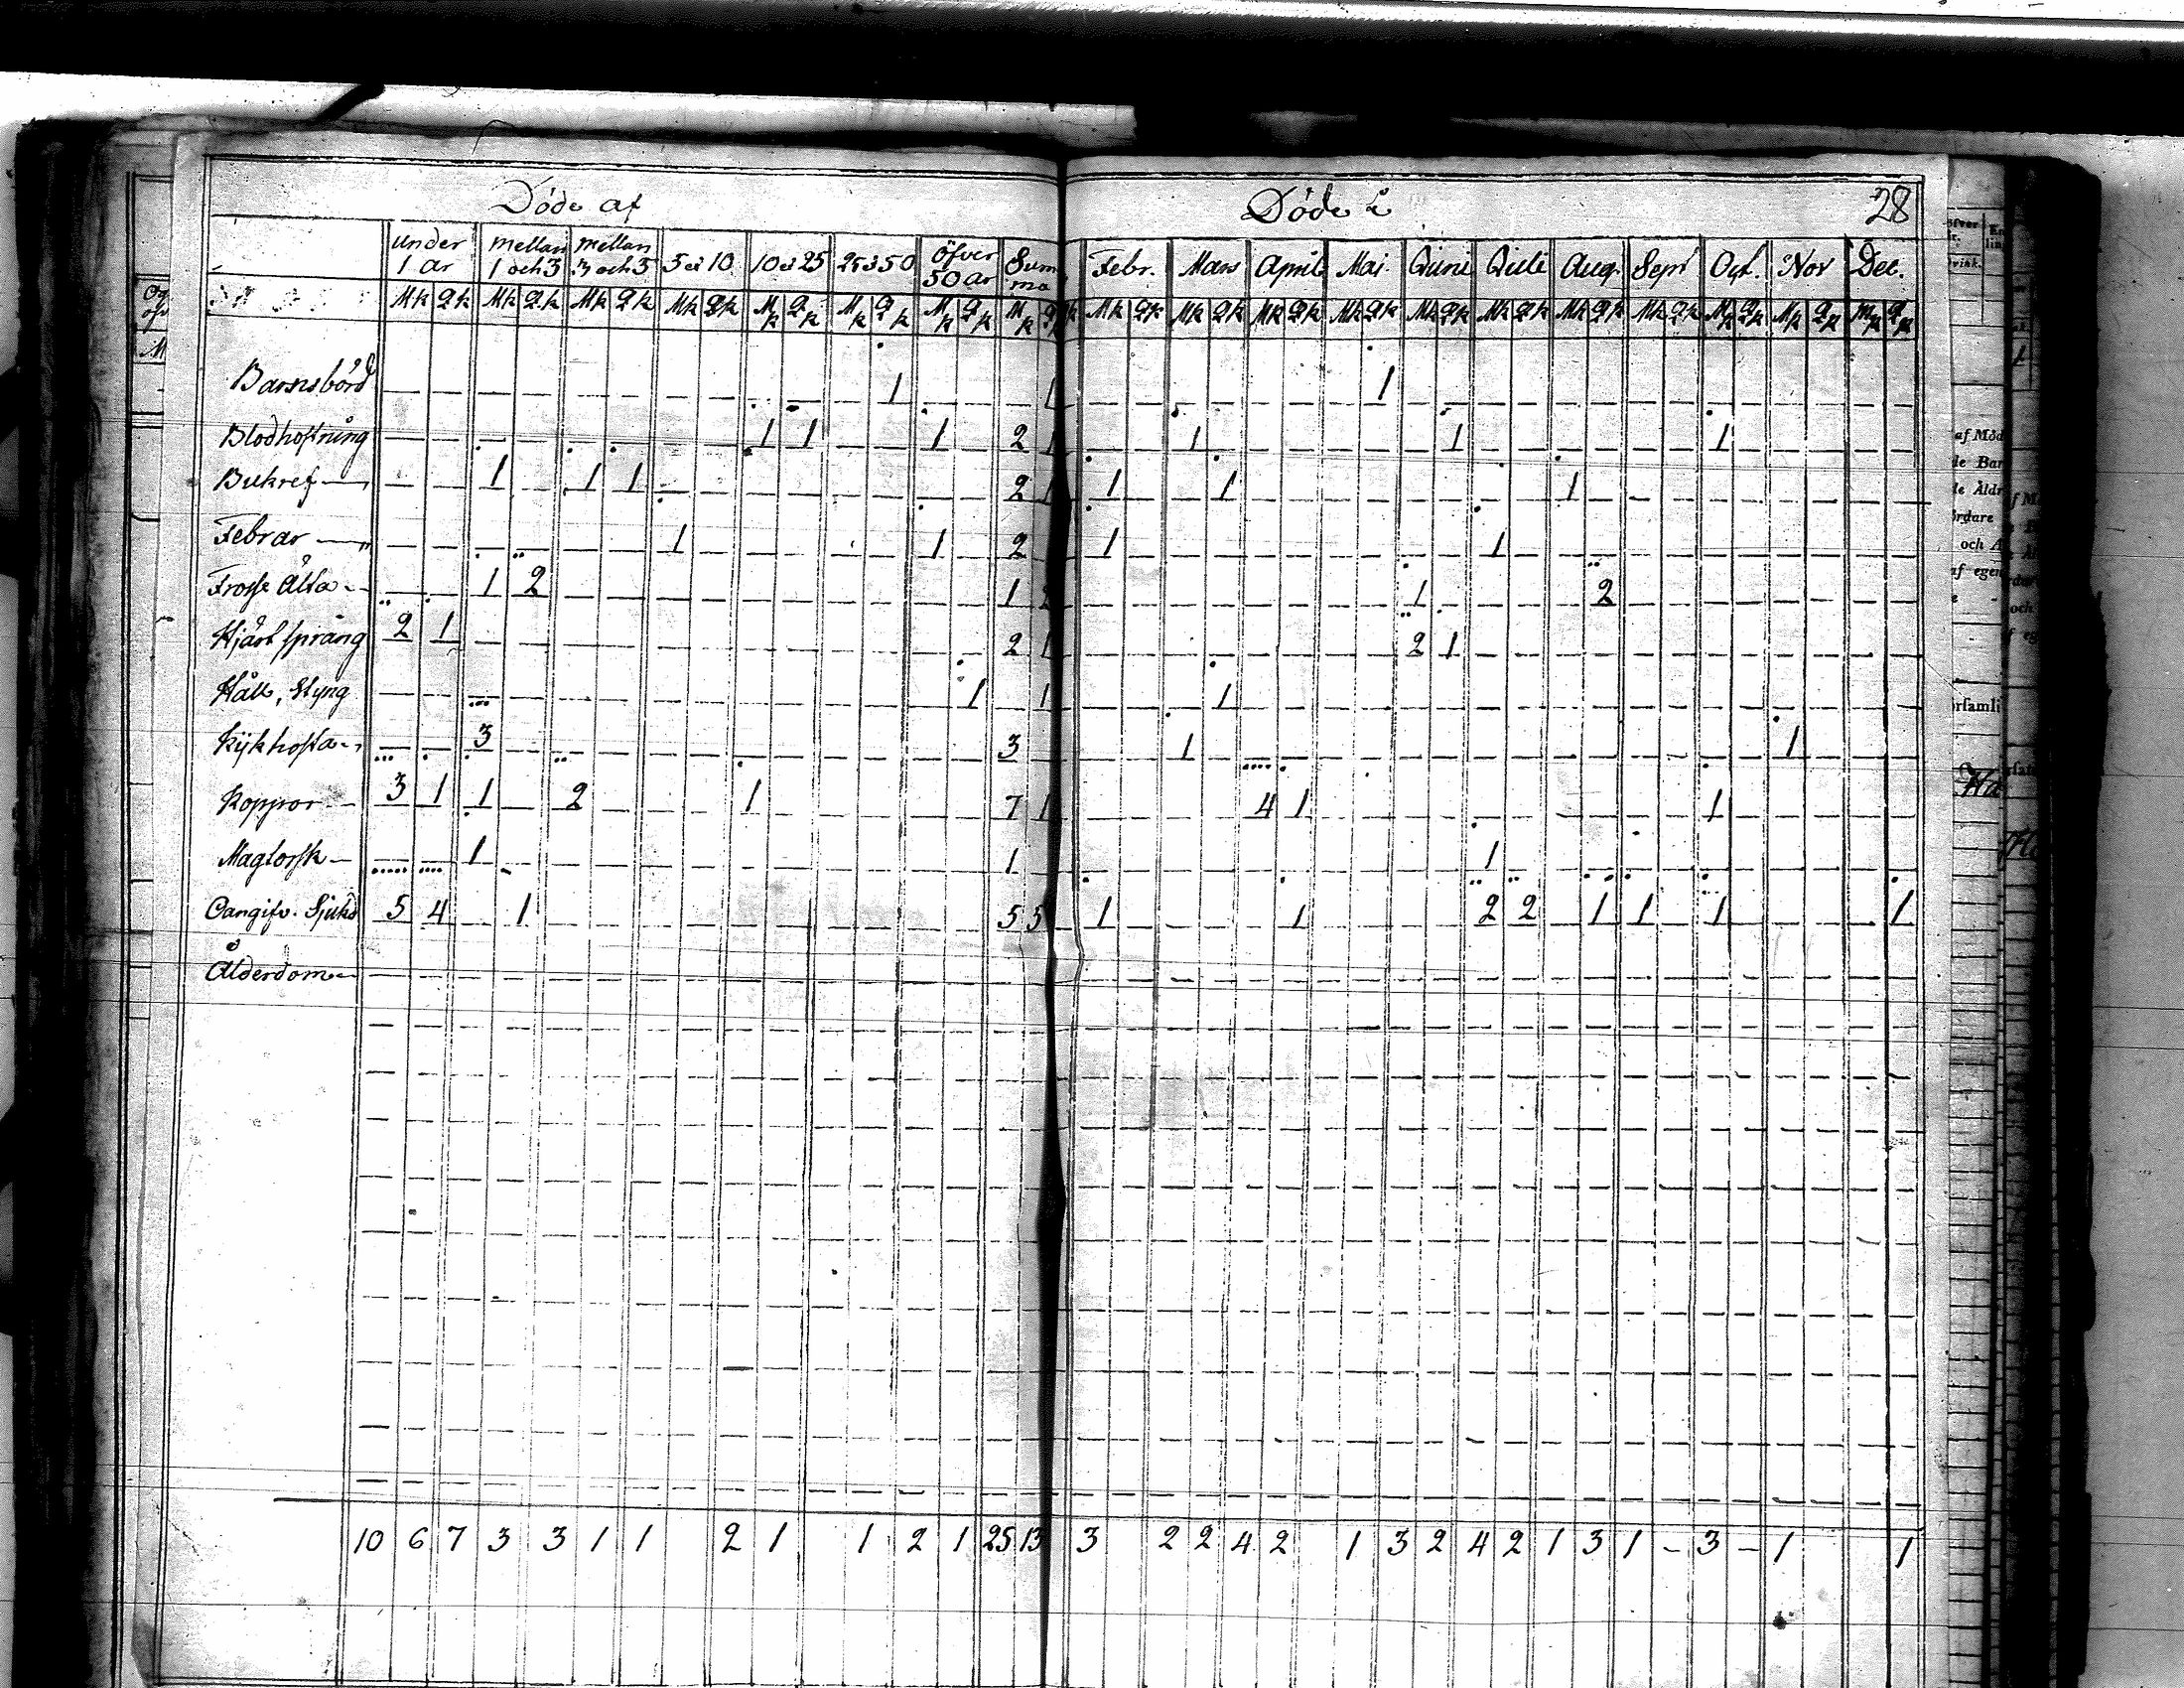 Döde af Döde i 28
under 1 år mellan 1 och 3 mellan 3 och 5 5 à 10 10 à 25 25 à 50 Öfver 50 år Summa Febr. Mars April Mai. Juni Juli Aug. Sept Oct. Nov Dec.
Mk Qk Mk Qk Mk Qk Mk Qk Mk Qk Mk Qk Mk Qk Mk Qk Mk Qk Mk Qk Mk Qk Mk Qk Mk Qk Mk Qk Mk Qk Mk Qk Mk Qk Mk Qk Mk Qk
Barnsbörd 1 1 1
Blodhostning 1 1 1 2 1 1 1 1
Bukref 1 1 1 2 1 1 1 1
Febrar 1 1 2 1 1
Frosse Älta 1 2 1 2 1 2
Hjärtsprång 2 1 2 1 2 1
Håll, Styng 1 1 1
Kjkhosta 3 3 1 1
Koppor 3 1 1 2 1 7 1 4 1 1
Magtorsk 1 1 1
Oangifv. Sjukd 5 4 1 5 5 1 1 2 2 1 1 1 1
Ålderdom
10 6 7 3 3 1 1 2 1 1 2 1 25 13 3 2 2 4 2 1 3 2 4 2 1 3 1 - 3 - 1 1
af Möd
de Bar
de Åldr
och
af egen